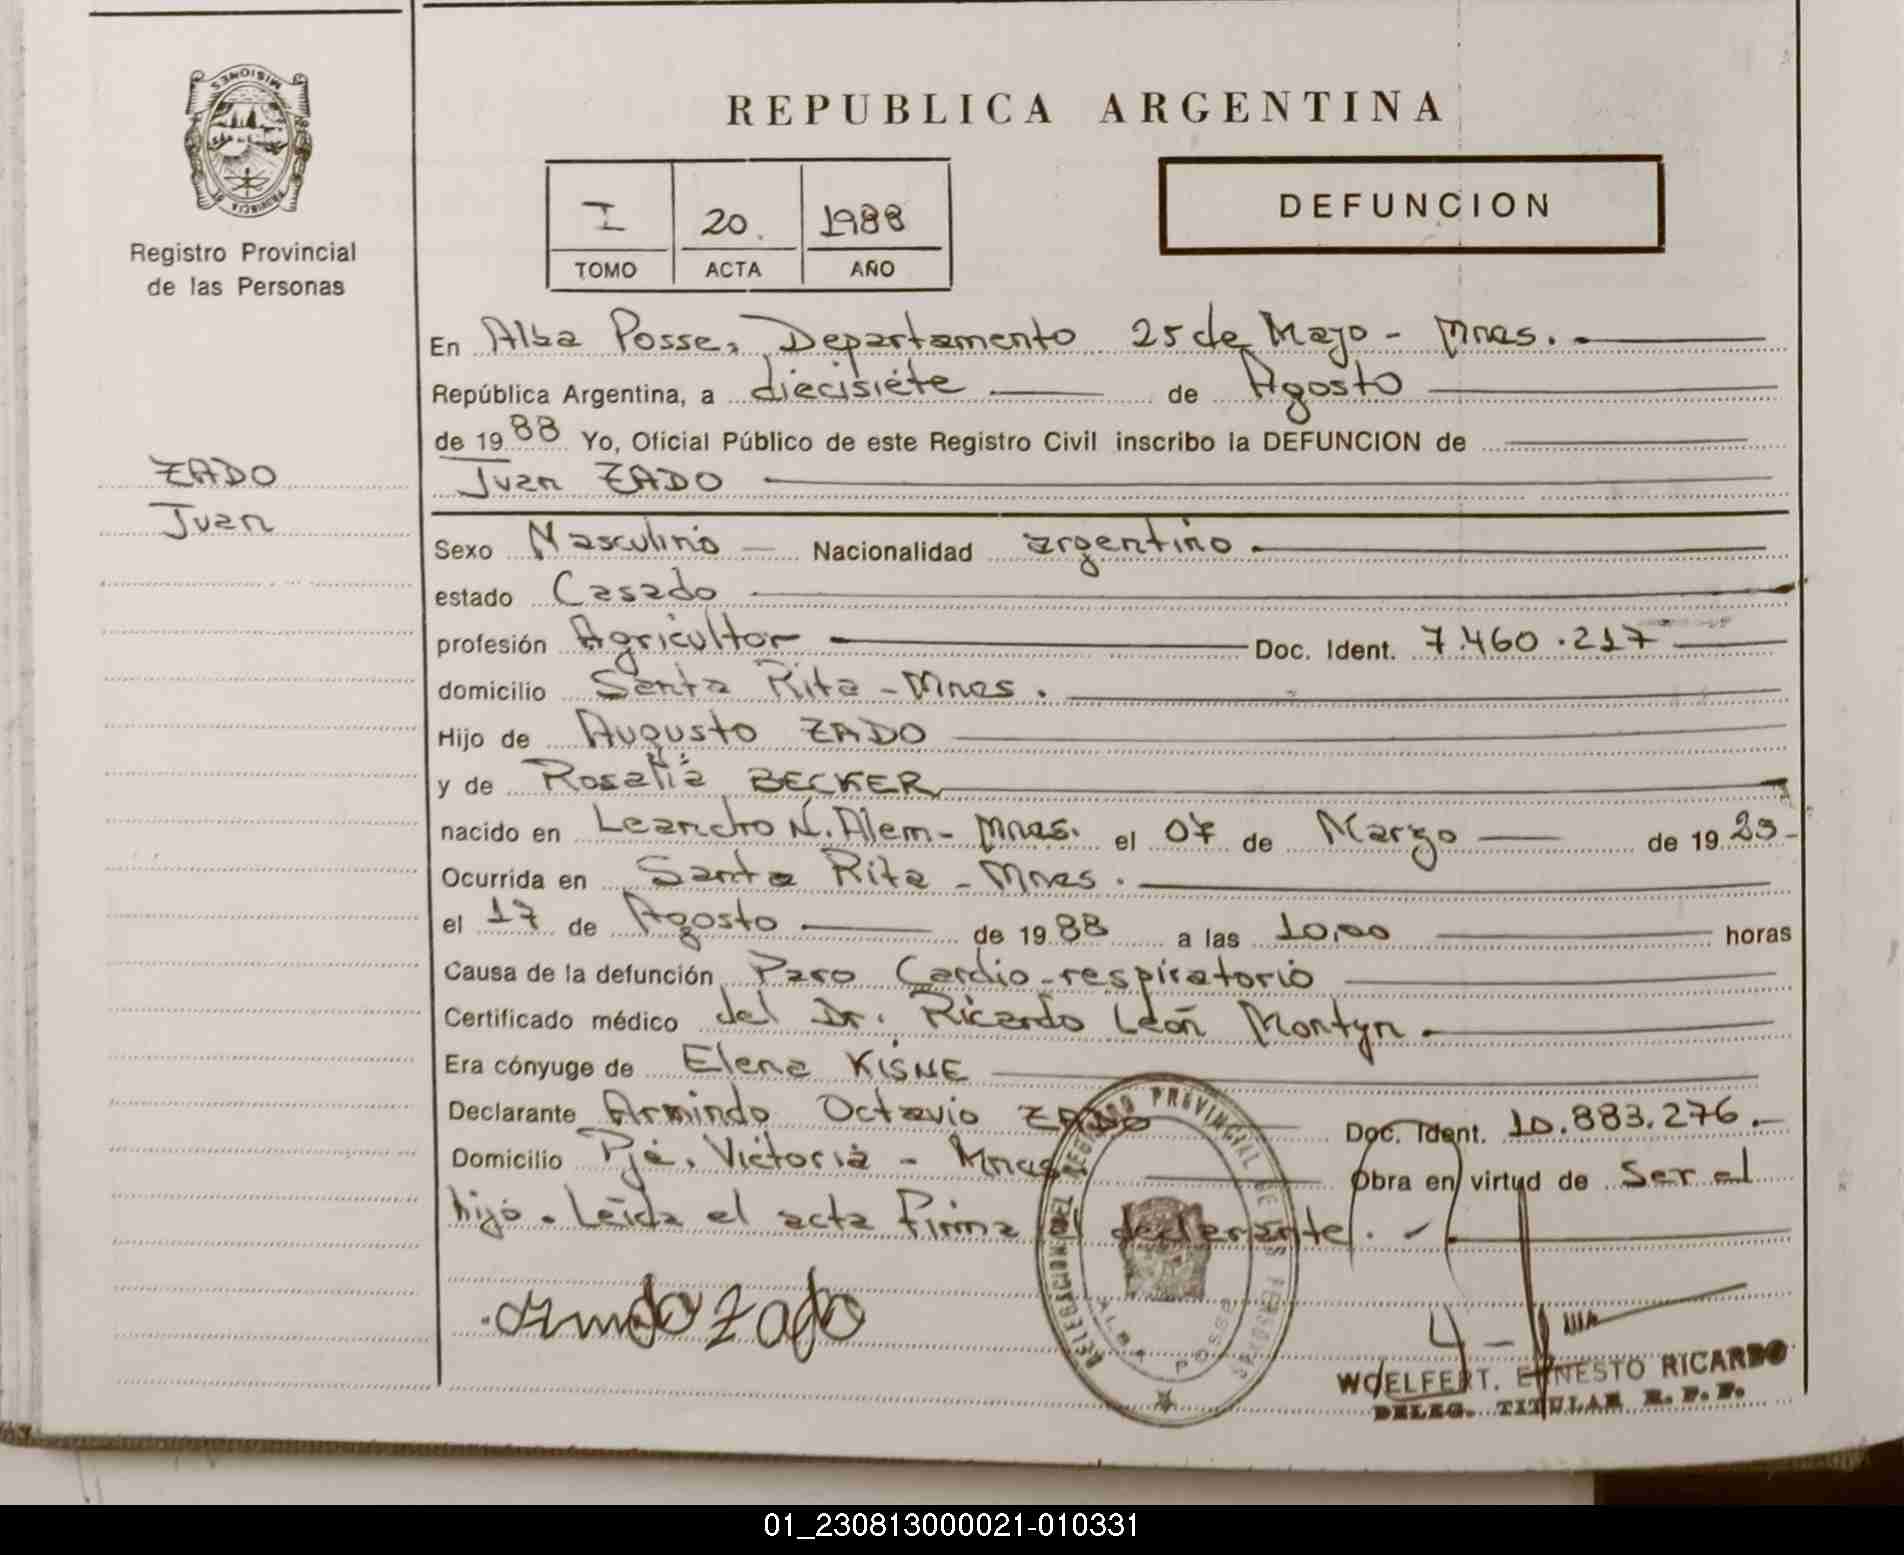 PROVINCIA DE MISIONES
Registro Provincial
de las Personas
ZADO
Juan
REPUBLICA ARGENTINA
I 20. 1988
TOMO ACTA AÑO
DEFUNCION
En Alba Posse, Departamento 25 de Mayo - Mnes.
República Argentina, a diecisiete de Agosto
de 1988 Yo, Oficial Público de este Registro Civil inscribo la DEFUNCION de
Juan ZADO
Sexo Masculino Nacionalidad argentino
estado Casado
profesión Agricultor Doc. Ident. 7.460.217
domicilio Santa Rita - Mnes.
Hijo de Augusto ZADO
y de Rosalia BECKER
nacido en Leandro N. Alem - Mnes. el 07 de Marzo de 19
Ocurrida en Santa Rita - Mnes.
el 17 de Agosto de 1988 a las 10,00 horas
Causa de la defunción Paro Cardio-respiratorio
Certificado médico del Dr. Ricardo León Montyn.
Era cónyuge de Elena KISNE
Declarante Armindo Octavio ZADO Doc. Ident. 10.883.276.-
Domicilio Pje. Victoria - Mnes. Obra en virtud de Ser el
hijo. Leida el acta Firma el declarante. -
Armindo Zado
DELEGACION DEL REGISTRO PROVINCIAL DE LAS PERSONAS
ALBA POSSE
WOELFERT, ERNESTO RICARDO
DELEG. TITULAR R. P. P.
01_230813000021-010331